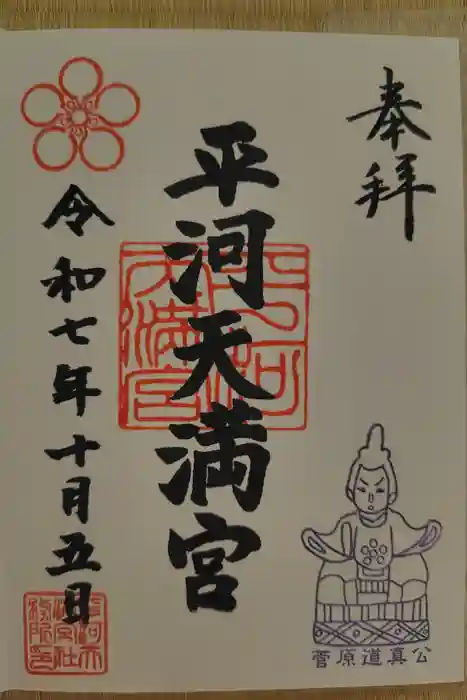 奉拝
平河天満宮
平河天満宮
令和七年十月五日
菅原道真公